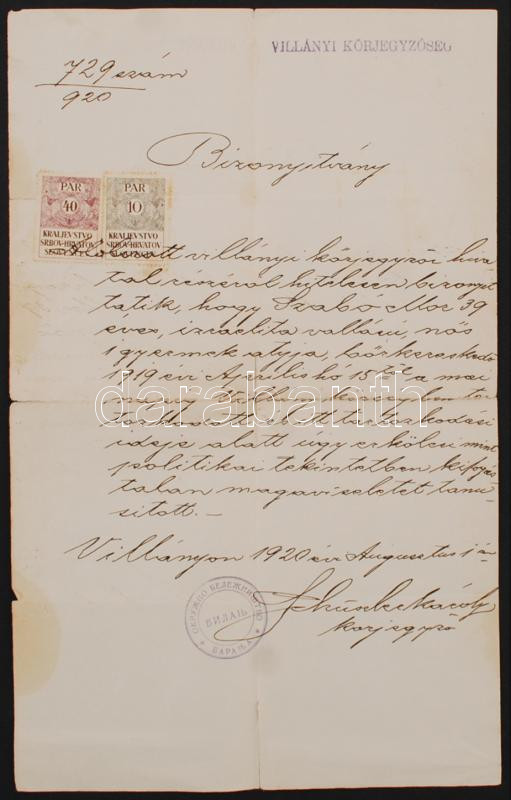 VILLÁNYI KÖRJEGYZŐSÉG
729 szám
920
Bizonyitvány
PAR
40
KRALJEVSTVO
SRBOV-HRVATOV
PAR
10
KRALJEVSTVO
SRBOV-HRVATOV
Alulirott villányi körjegyzői hiva
tal részéről hitelesen bizonyit
tatik, hogy Szabó Mór 39
éves, izraelita vallású, nős
1 gyermek atyja, bőrkereskedő
1919 évi Április hó 15 től a mai
napig Villány községben tar
tózkodott s ebbeli tartózkodási
ideje alatt úgy erkölcsi mint
politikai tekintetben kifogás
talan magaviseletet tanu
sitott. –
Villányon 1920 évi Augusztus 1 én
Károly
körjegyző
ОКРУЖНО БЕЛЕЖНИШТВО
ВИЛАЊ
БАРАЊА
darabanth